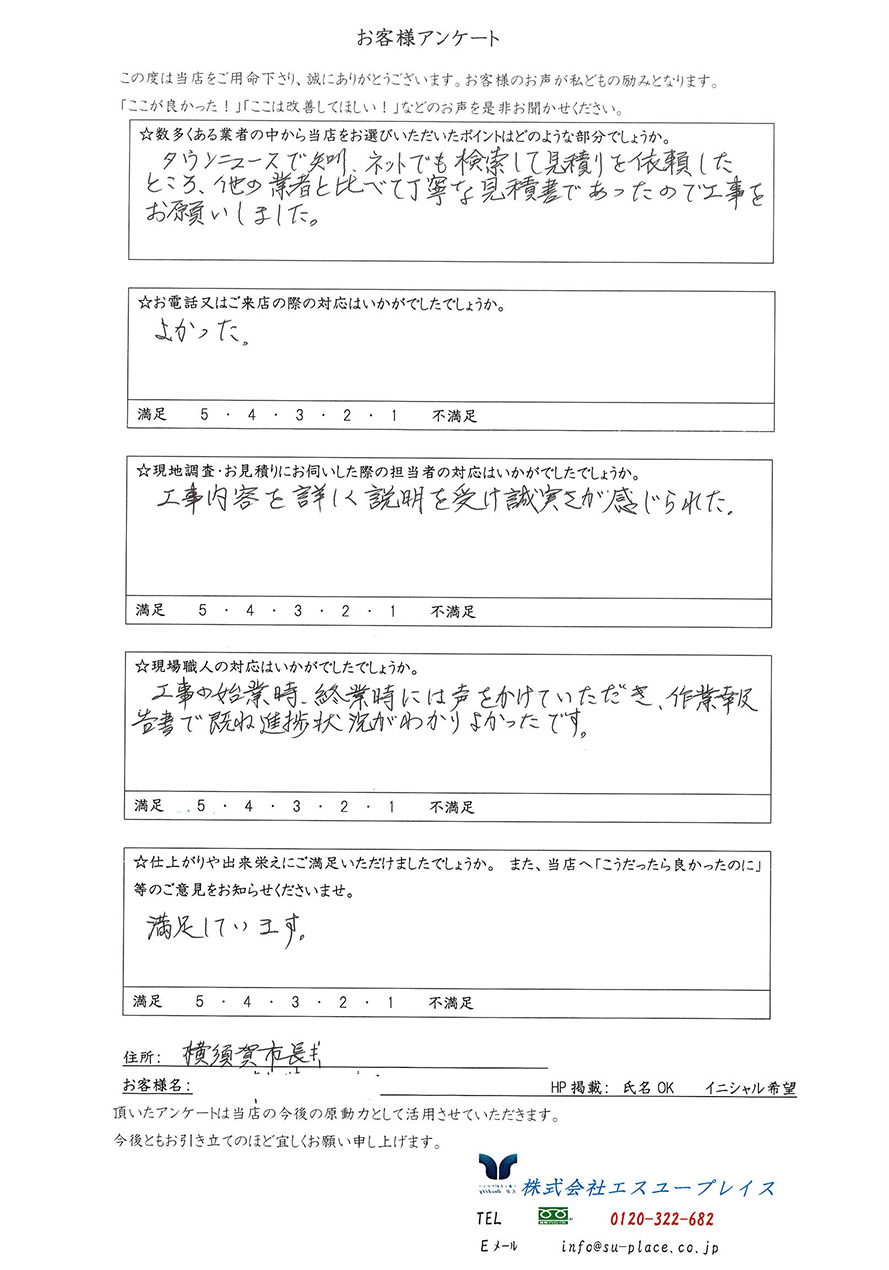 お客様アンケート
この度は当店をご用命下さり、誠にありがとうございます。お客様のお声が私どもの励みとなります。
「ここが良かった!」「ここは改善してほしい!」などのお声を是非お聞かせください。
☆数多くある業者の中から当店をお選びいただいたポイントはどのような部分でしょうか。
タウンニュースで知り、ネットでも検索して見積りを依頼した
ところ、他の業者と比べて丁寧な見積書であったので工事を
お願いしました。
☆お電話又はご来店の際の対応はいかがでしたでしょうか。
よかった。
満足 5 ・ 4 ・ 3 ・ 2 ・ 1 不満足
☆現地調査・お見積りにお伺いした際の担当者の対応はいかがでしたでしょうか。
工事内容を詳しく説明を受け誠実さが感じられた。
満足 5 ・ 4 ・ 3 ・ 2 ・ 1 不満足
☆現場職人の対応はいかがでしたでしょうか。
工事の始業時、終業時には声をかけていただき、作業報
告書で既ね進捗状況がわかりよかったです。
満足 5 ・ 4 ・ 3 ・ 2 ・ 1 不満足
☆仕上がりや出来栄えにご満足いただけましたでしょうか。 また、当店へ「こうだったら良かったのに」
等のご意見をお知らせくださいませ。
満足しています。
満足 5 ・ 4 ・ 3 ・ 2 ・ 1 不満足
住所: 横須賀市長
お客様名: HP掲載: 氏名OK イニシャル希望
頂いたアンケートは当店の今後の原動力として活用させていただきます。
今後ともお引き立てのほど宜しくお願い申し上げます。
株式会社エスユープレイス
TEL 0120-322-682
Eメール info@su-place.co.jp